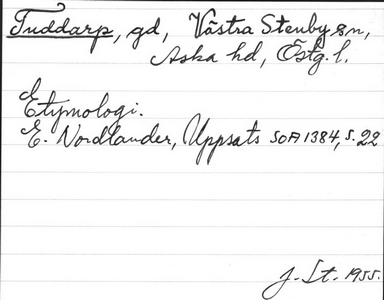 Tuddarp, gd, Västra Stenby sn,
Aska hd, Östg. l.
Etymologi.
E. Nordlander, Uppsats SOA 1384, s. 22
J. St. 1955.